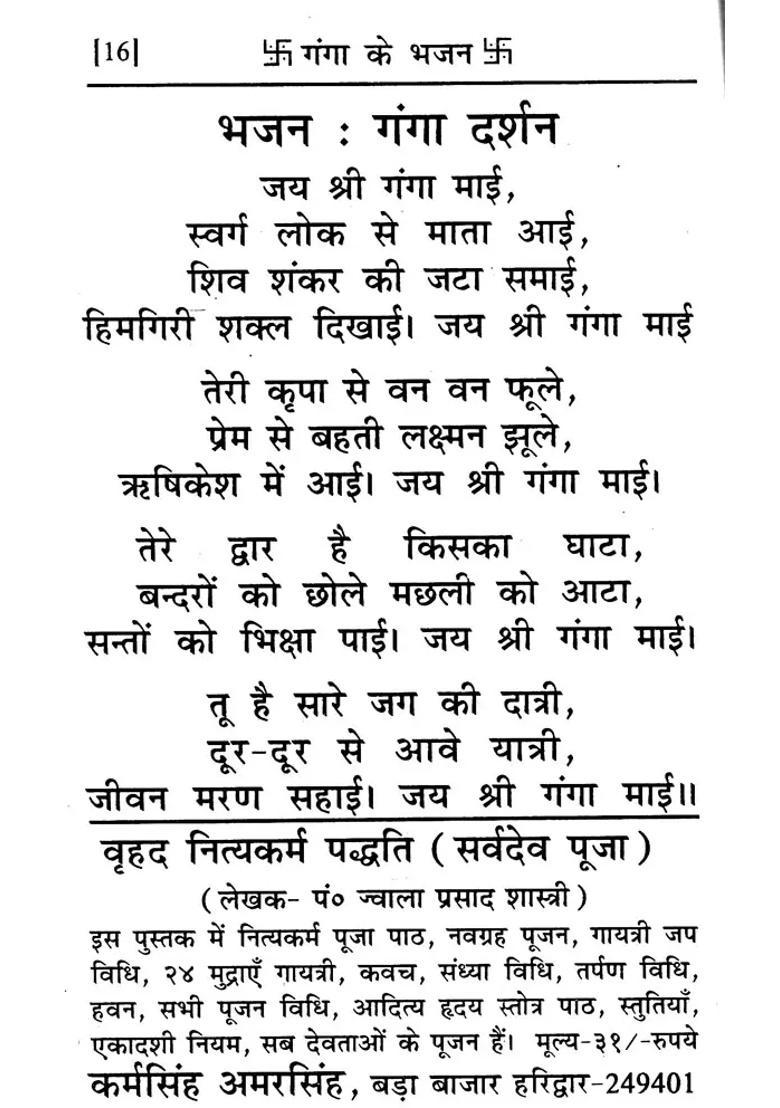 [16] 卐 गंगा के भजन 卐
भजन : गंगा दर्शन
जय श्री गंगा माई,
स्वर्ग लोक से माता आई,
शिव शंकर की जटा समाई,
हिमगिरी शक्ल दिखाई। जय श्री गंगा माई
तेरी कृपा से वन वन फूले,
प्रेम से बहती लक्ष्मन झूले,
ऋषिकेश में आई। जय श्री गंगा माई।
तेरे द्वार है किसका घाटा,
बन्दरों को छोले मछली को आटा,
सन्तों को भिक्षा पाई। जय श्री गंगा माई।
तू है सारे जग की दात्री,
दूर-दूर से आवे यात्री,
जीवन मरण सहाई। जय श्री गंगा माई॥
वृहद नित्यकर्म पद्धति (सर्वदेव पूजा)
(लेखक- पं० ज्वाला प्रसाद शास्त्री)
इस पुस्तक में नित्यकर्म पूजा पाठ, नवग्रह पूजन, गायत्री जप
विधि, २४ मुद्राएँ गायत्री, कवच, संध्या विधि, तर्पण विधि,
हवन, सभी पूजन विधि, आदित्य हृदय स्तोत्र पाठ, स्तुतियाँ,
एकादशी नियम, सब देवताओं के पूजन हैं। मूल्य-३१/-रुपये
कर्मसिंह अमरसिंह, बड़ा बाजार हरिद्वार-249401